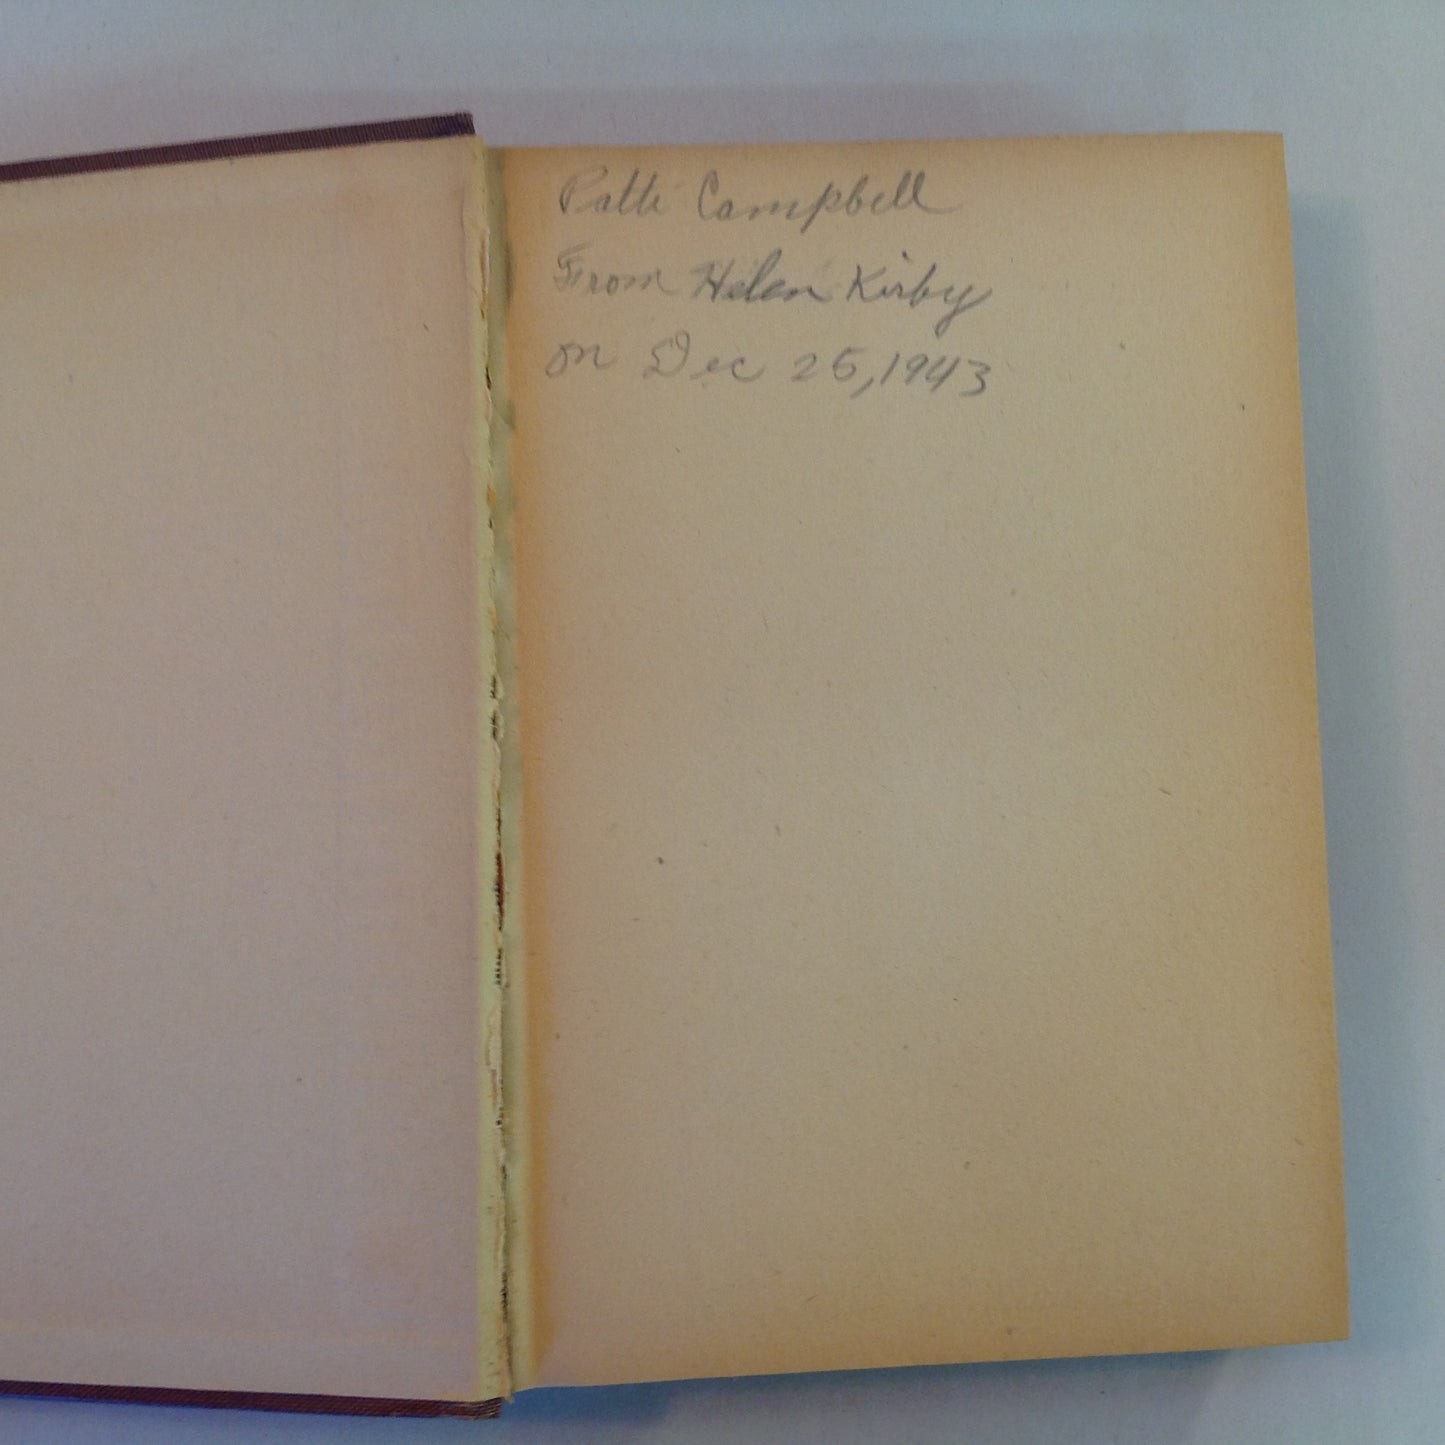 Patti Campbell
From Helen Kirby
on Dec 25, 1943